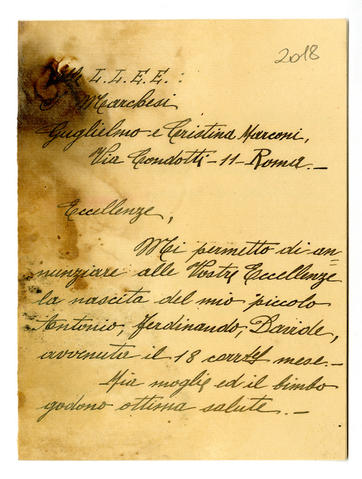 2018
Alle L.L.E.E.:
I Marchesi
Guglielmo e Cristina Marconi,
Via Condotti - 11 - Roma. -
Eccellenze,
Mi permetto di an=
nunziare alle Vostre Eccellenze
la nascita del mio piccolo
Antonio, Ferdinando, Davide,
avvenuta il 18 corr. mese. -
Mia moglie ed il bimbo
godono ottima salute. -